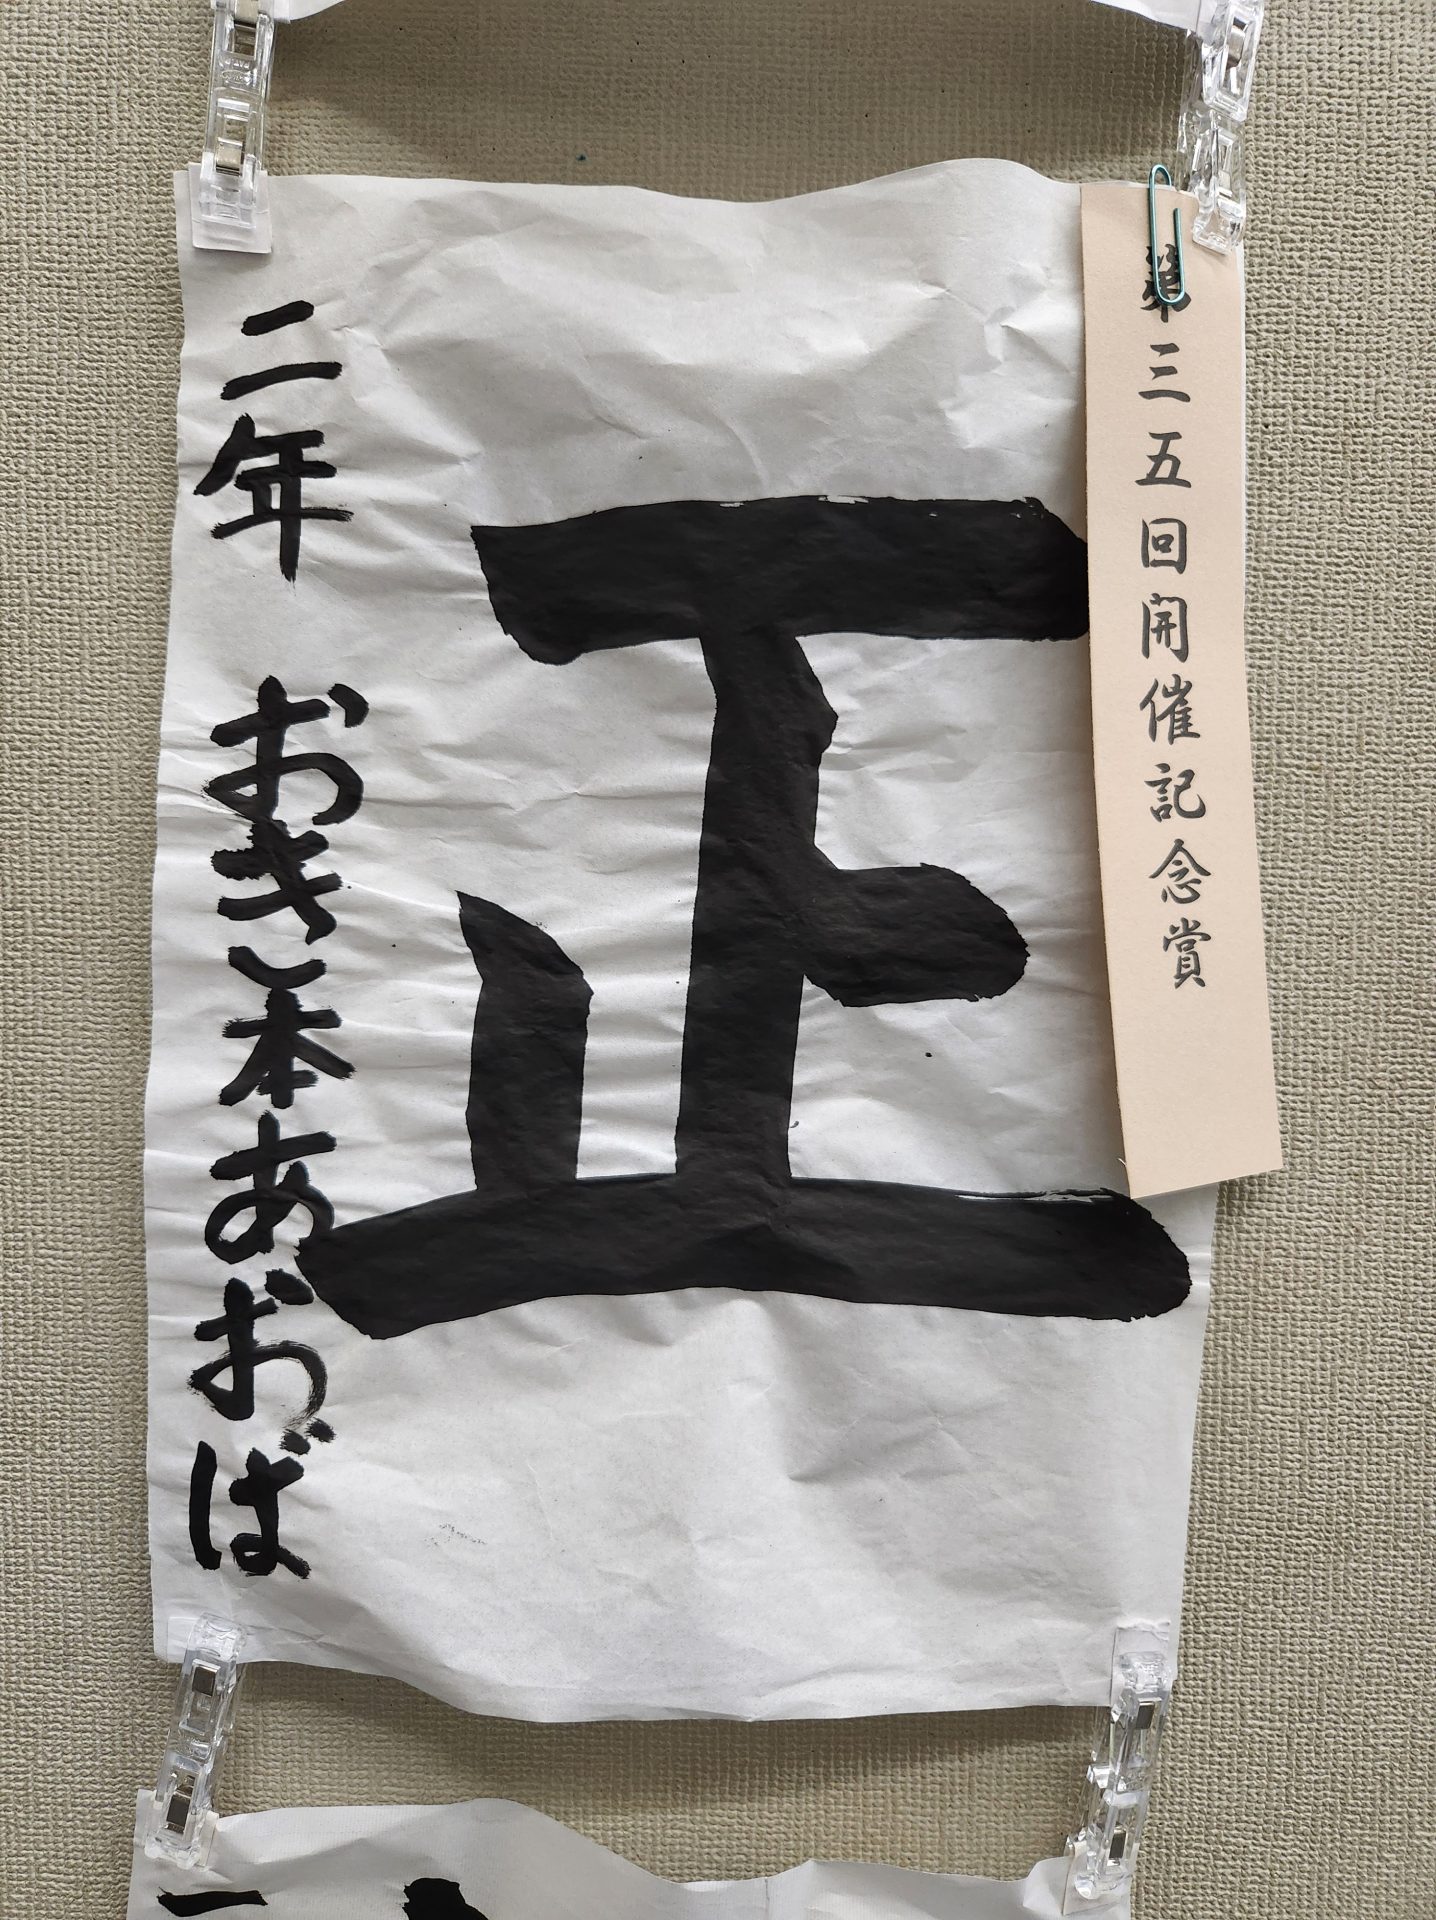 第三五回開催記念賞
正
二年 おぎ本あおば